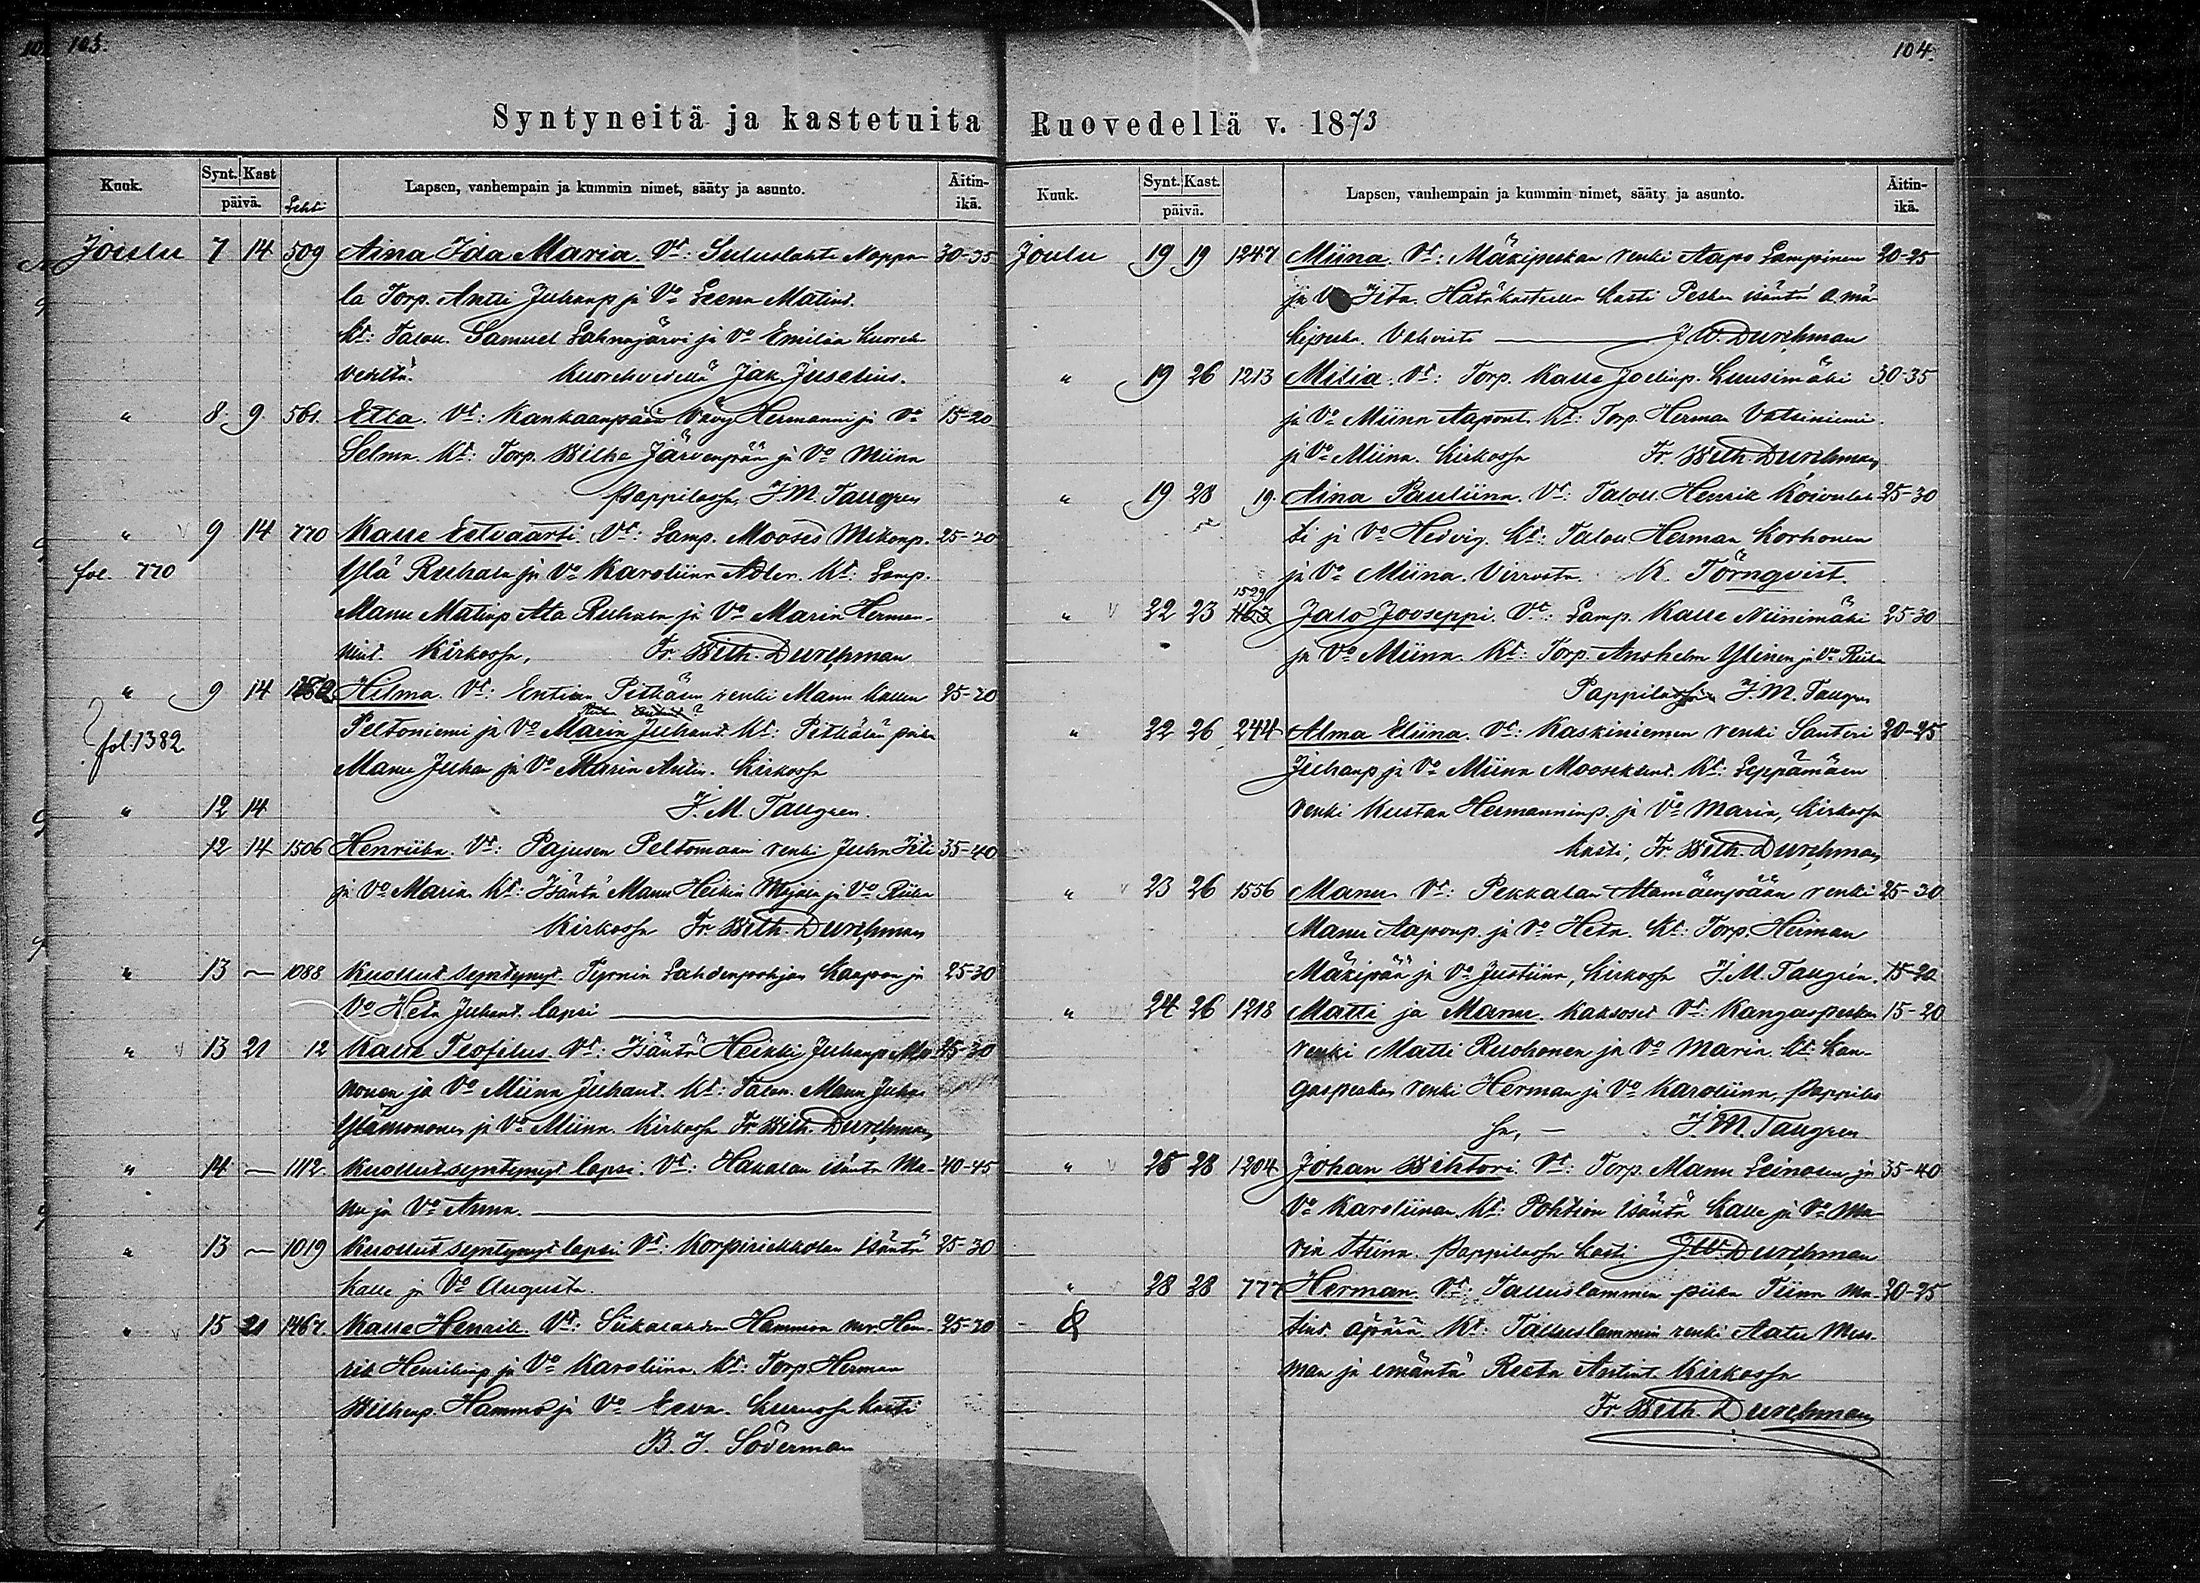 103.
104.
Syntyneitä ja kastetuita
Kuuk. Synt. Kast päivä. Lehti Lapsen, vanhempain ja kummin nimet, sääty ja asunto. Äitin-ikä.
Joulu 7 14 509 Aina Ida Maria. Vt: Suluslahti Noppa- 30-35
la Torp. Antti Juhanp ja Vo Leena Matint.
Kt: Talou. Samuel Lahnajärvi ja Vo Emilia Kuoreh-
vedeltä. Kuorehvedellä Jak. Juselius.
" 8 9 561. Etla. Vt: Kankaanpään Vävy Hermanni ja Vo 15-20
Selma. Kt: Torp. Wilhe Järvenpää ja Vo Miina
Pappilassa, J. M. Taugren
" 9 14 770 Kalle Edvaarti. Vt: Lamp. Mooses Mikonp. 25-30
fol. 770 Ylä Ruhala ja Vo Karoliina Adler. Kt: Lamp.
Manu Matinp Ala Ruhala ja Vo Maria Herman-
nint. Kirkossa, Fr. Wilh. Durchman
" 9 14 Hilma. Vt: Pitkäsen renki Manu Kallen 25-30
fol. 1382 Peltoniemi ja Vo Maria Juhant. Kt: Pitkälä
Manu Juha ja Vo Maria Antin. Kirkossa
" 12 14 J. M. Taugren.
12 14 1506 Henriika. Vt: Pajusen Peltomaan renki Juha 35-40
ja Vo Maria. Kt: Isäntä Manu Heikin Majala ja Vo Riika
Kirkossa Fr. Wilh. Durchman
" 13 — 1088 Kuollut syntynyt. Tyrnin Lahdenpohjan Kaapon ja 25-30
Vo Heta Juhant. lapsi
" 13 21 12 Kalle Teofilus. Vt: Isäntä Heikki Juhanp Mu- 25-30
nonen ja Vo Miina Juhant. Kt: Talon. Manu Juha
Ylämononen ja Vo Miina. Kirkossa Fr. Wilh. Durchman
" 14 — 1112. Kuollut syntynyt lapsi. Vt: Hakalan isäntä Ma- 40-45
nu ja Vo Anna.
" 13 — 1019 Kuollut syntynyt lapsi Vt: Korpiriekkolan isäntä 25-30
Kalle ja Vo Augusta.
" 15 21 1467. Kalle Henrik. Vt: Siikalahden Hammon Hen- 25-30
rik Henrikinp ja Vo Karoliina. Kt: Torp. Herman
Wilhenp. Hammo ja Vo Eeva. Kurussa kasti
B. J. Söderman
Ruovedellä v. 1873
Kuuk. Synt. Kast. päivä. Lapsen, vanhempain ja kummin nimet, sääty ja asunto. Äitin-ikä.
Joulu 19 19 1247 Miina. Vt: Mäkipeskan renki Aapo Lampinen 20-25
ja Vo Iita. Hätäkasteella kasti Peskan isäntä A. Mä-
kipeska. Vahvisti J. W. Durchman
" 19 26 1213 Milia. Vt: Torp. Kalle Joelinp. Kuusimäki 30-35
ja Vo Miina Aapont. Kt: Torp. Herman Vatiniemi.
ja Vo Miina. Kirkossa Fr. Wilh. Durchman
" 19 28 19. Aina Pauliina. Vt: Talou. Henrik Koivulah- 25-30
ti ja Vo Hedvig. Kt: Talou Herman Korhonen
ja Vo Miina. Virroilta. K. Törnqvist.
1529
" 22 23 1163 Jalo Jooseppi. Vt: Lamp. Kalle Niinimäki 25-30
ja Vo Miina. Kt: Torp. Anshelm Ylinen ja Vo Riika
Pappilassa J. M. Taugren
" 22 26 244 Alma Eliina. Vt: Kaskiniemen renki Santeri 20-25
Juhanp ja Vo Miina Moosekunt. Kt: Leppämäen
renki Kustaa Hermanninp. ja Vo Maria, Kirkossa
kasti, Fr. Wilh. Durchman
" 23 26 1556 Manu Vt: Pekkalan Alamäenpään renki 25-30
Manu Aaponp. ja Vo Heta. Kt: Torp. Heiman
Mäkipää ja Vo Justiina, Kirkossa J. M. Taugrén. 15-20
" 24 26 1218 Matti ja Manu. Kaksoset Vt: Kangaspeskan 15-20
renki Matti Ruohonen ja Vo Maria. Kt: Kan-
gaspeskan renki Herman ja Vo Karoliina, Pappilas-
sa, — J. M. Taugren
" 25 28 1204 Johan Wihtori. Vt: Torp. Manu Leinonen ja 35-40
Vo Karoliina. Kt: Pohtion isäntä Kalle ja Vo Ma-
ria Stiina. Pappilassa kasti J. W. Durchman
" 28 28 777 Herman. Vt: Talluslammin piika Tiina Ma- 20-25
tint. äpärä. Kt: Talluslammin renki Aatu
man ja emäntä Reeta Antint. Kirkossa
Fr. Wilh. Durchman